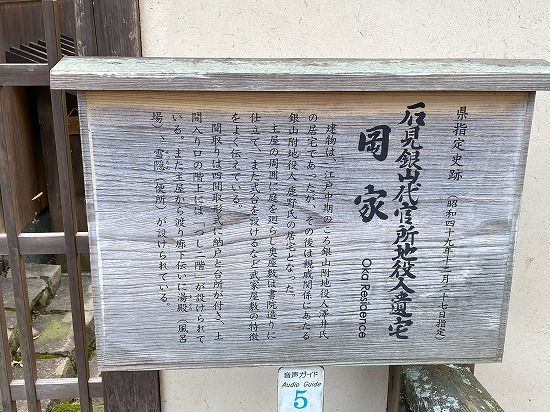 県指定史跡 (昭和四十九年十二月二十七日指定)
石見銀山代官所地役人遺宅
岡家
Oka Residence
建物は、江戸中期のころ銀山附地役人澤井氏
の居宅であったが、その後は親戚関係にあたる
銀山附地役人鹿野氏の居宅となった。
主屋の周囲に庭を廻らし奥座敷は書院造りに
仕立て、また式台を設けるなど武家屋敷の特徴
をよく伝えている。
間取りは四間取形式に納戸と台所が付き、土
間入り口の階上には「つし二階」が設けられて
いる。また主屋から渡り廊下伝いに湯殿(風呂
場)、雪隠(便所)が設けられている。
音声ガイド
Audio Guide
5